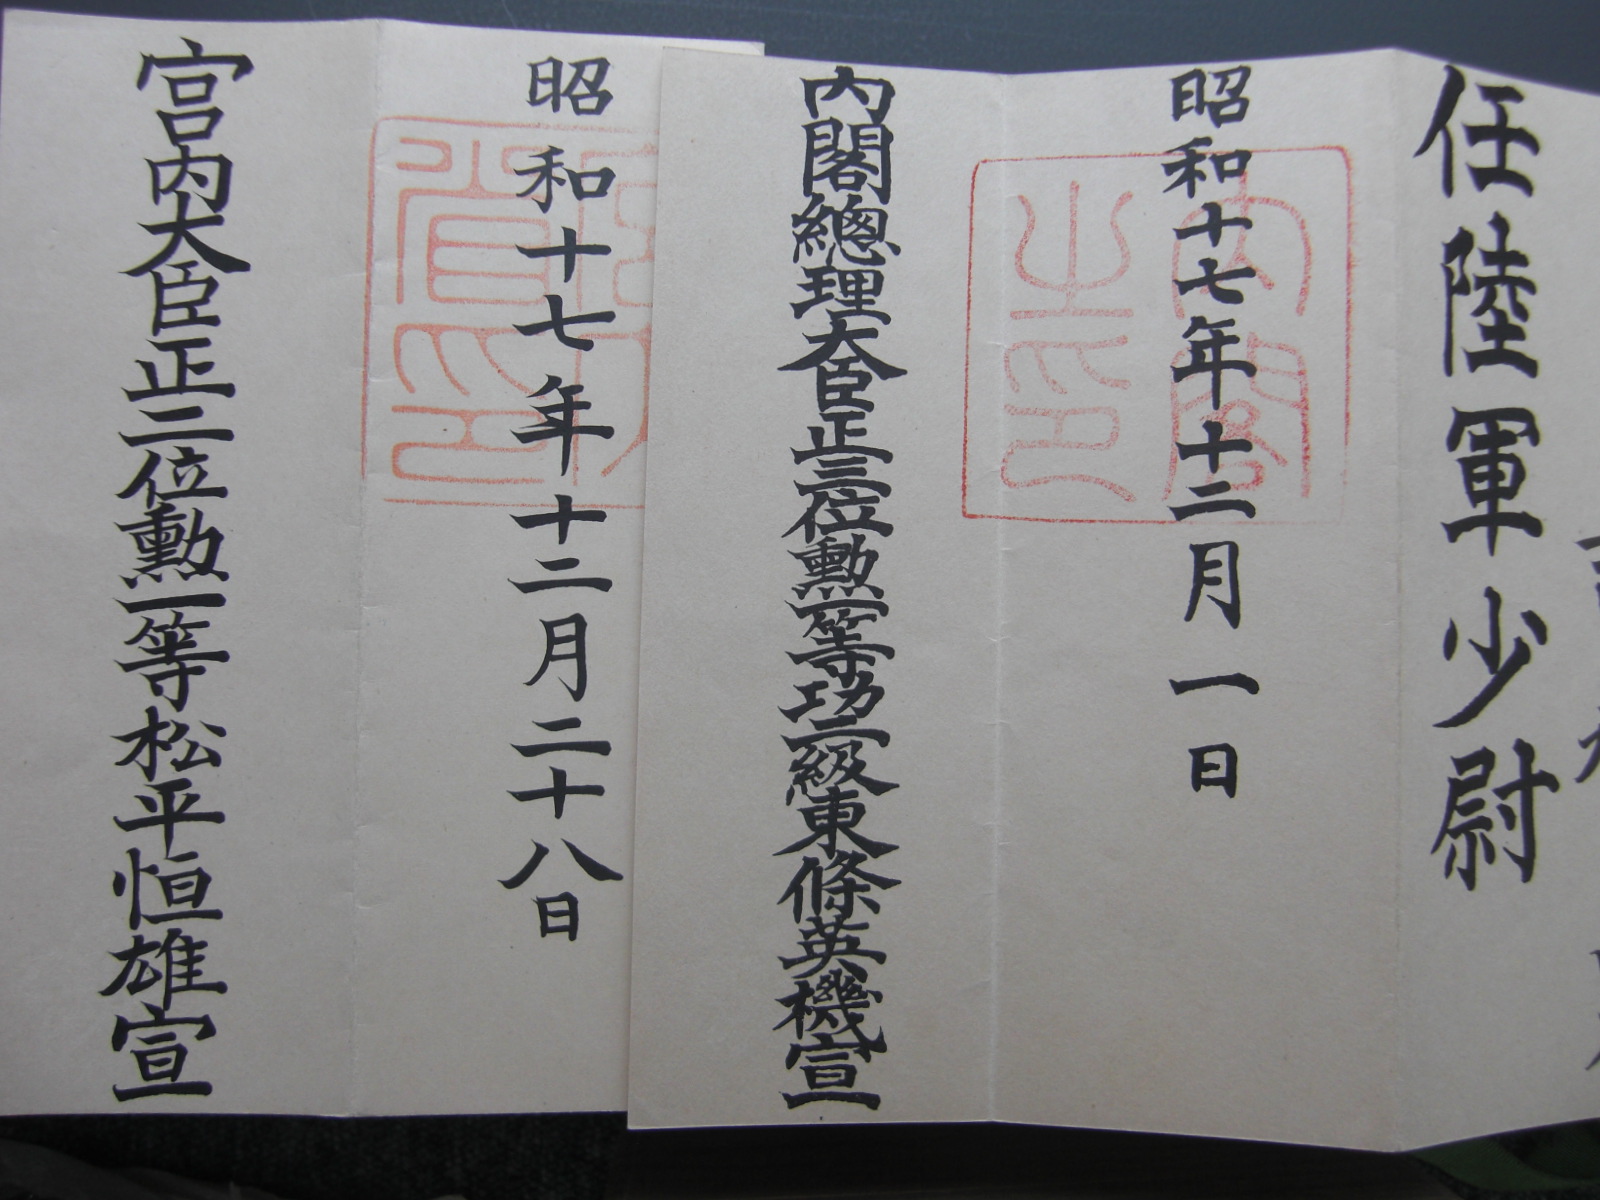 任陸軍少尉
昭和十七年十二月一日
内閣之印
内閣總理大臣正三位勲一等功二級東條英機宣
昭和十七年十二月二十八日
宮内大臣正二位勲一等松平恒雄宣